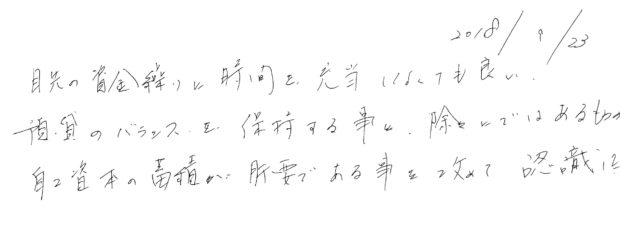 2018/9/23
目先の資金繰りに時間を充当しなくても良い.
預.貸のバランスを保持する事と、除々にではあるものの
自己資本の蓄積が肝要である事を改めて認識した